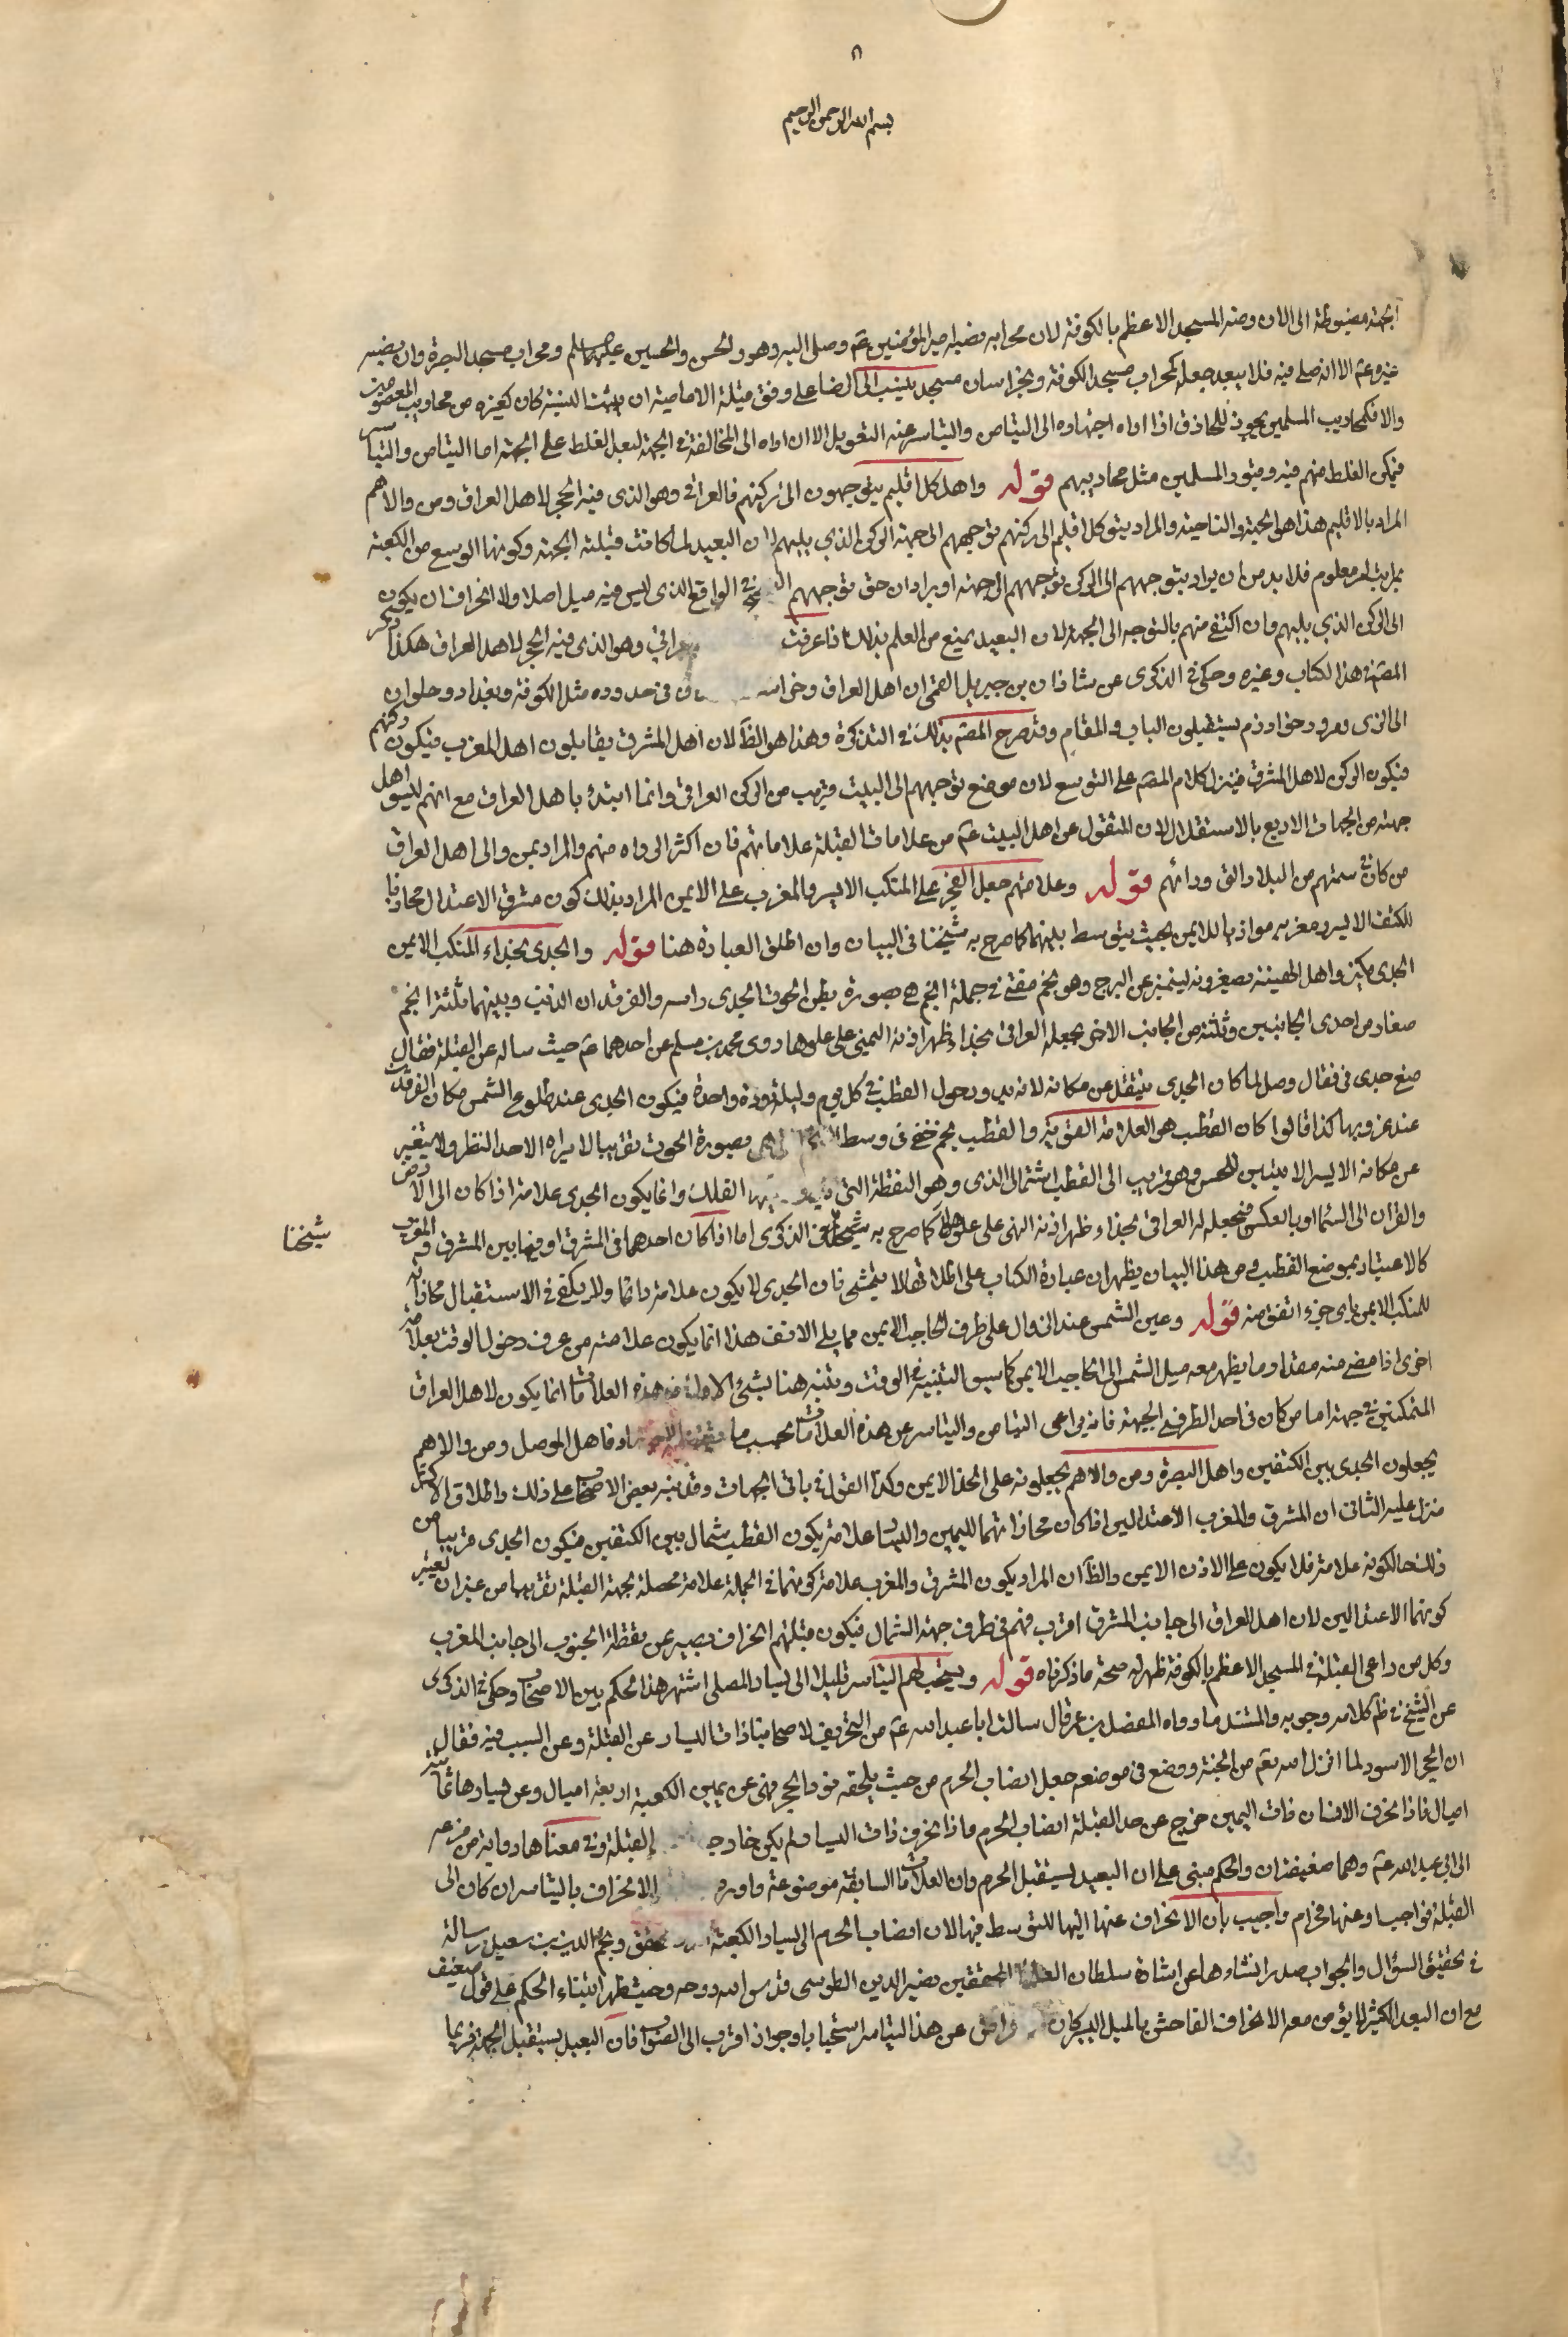 ٨
بسم الله الرحمن الرحيم
الجهة مضبوطة الى الان ومنه المسجد الاعظم بالكوفة لان محرابه نصبه امير المؤمنين عم وصلى اليه وهو والحسن والحسين عليهم السلم ومحراب مسجد البصرة وان نصبه
غيره عم الا انه صلى فيه فلا يبعد جعله كمحراب مسجد الكوفة وبخراسان مسجد ينسب الى الرضا على وفق قبلة الامامية ان ثبتت النسبة كان كغيره من محاريب المعصومين
والا فكمحاريب المسلمين يجوز للحاذق اذا اداه اجتهاده الى التيامن والتياسر عنه التعويل الا ان اداه الى المخالفة في الجهة لبعد الغلط على الجهة اما التيامن والتياسر
فيمكن الغلط منهم فيه وقبور المسلمين مثل محاريبهم قوله واهل كل اقليم يتوجهون الى ركنهم فالعراقي وهو الذي فيه الحجر لاهل العراق ومن والاهم
المراد بالاقليم هذا هو الجهة والناحية والمراد بتوجه كل اقليم الى ركنهم توجههم الى جهة الركن الذي يليهم لان البعيد لما كانت قبلته الجهة وكونها اوسع من الكعبة
بمراتب امر معلوم فلابد من ان يراد بتوجههم الى الركن توجههم الى جهته او يراد ان حق توجههم في الواقع الذي ليس فيه ميل اصلا ولا انحراف ان يكون
الى الركن الذي يليهم وان اكتفى منهم بالتوجه الى الجهة لان البعيد يمنع من العلم بذلك اذا عرفت وهو الذي فيه الحجر لاهل العراق هكذا ذكر
المصنف في هذا الكتاب وغيره وحكى في الذكرى عن شاذان بن جبرئيل القمي ان اهل العراق وخراسان في حدوده مثل الكوفة وبغداد وحلوان
الى الري ومرو وخوارزم يستقبلون الباب والمقام وقد صرح المصنف بذلك في التذكرة وهذا هو الظ لان اهل المشرق يقابلون اهل المغرب فيكون ركنهم
فيكون الركن لاهل المشرق فينزل كلام المصنف على التوسع لان موضع توجههم الى البيت قريب من الركن العراقي وانما ابتدأ باهل العراق مع انهم ليسوا اهل
جهة من الجهات الاربع بالاستقلال لان المنقول عن اهل البيت عم من علامات القبلة علاماتهم فان اكثر الرواه منهم والمراد بمن والى اهل العراق
من كان في سمتهم من البلاد التي ورائهم قوله وعلامتهم جعل الفجر على المنكب الايسر والمغرب على الايمن المراد بذلك كون مشرق الاعتدال محاذيا
للكتف الايسر ومغربه موازيا للايمن بحيث يتوسط بينهما كما صرح به شيخنا في البيان وان اطلق العبارة هنا قوله والجدي بحذاء المنكب الايمن
الجدي مكبر واهل الهيئة يصغرونه ليتميز عن البرج وهو نجم مضئ في جملة انجم هي بصورة بطن الحوت الجدي راسه والفرقدان الذنب وبينهما ثلثة انجم
صغار من احدى الجانبين وثلثة من الجانب الاخر يجعله العراقي بحذاء ظهر اذنه اليمنى على علوها روى محمد بن مسلم عن احدهما عم حيث ساله عن القبلة فقال
ضع جدي في قفال وصل لما كان الجدي ينتقل عن مكانه لانه يدور حول القطب في كل يوم وليلة دورة واحدة فيكون الجدي عند طلوع الشمس مكان الفرقدين
عند غروبها كذا قالوا كان القطب هو العلامة القوية والقطب نجم خفي في وسط الانجم التي هي بصورة الحوت تقريبا لا يراه الا حديد النظر ولا يتغير
عن مكانه الا يسيرا لا يتبين للحس وهو قريب الى القطب الشمالي الذي وهو النقطة التي الفلك وانما يكون الجدي علامة اذا كان الى الارض
والفرقدان الى السماء او بالعكس فيجعله العراقي بحذاء ظهر اذنه اليمنى على علوها كما صرح به شيخنا في الذكرى اما اذا كان احدهما في المشرق او فيما بين المشرق والمغرب
شيخنا
كالاعتبار بموضع القطب ومن هذا البيان يظهر ان عبارة الكتاب على اطلاقها لا يتمشى فان الجدي لا يكون علامة دائما ولا يكفي في الاستقبال محاذاته
للمنكب الايمن باي جزء اتفق منه قوله وعين الشمس عند الزوال على طرف الحاجب الايمن مما يلي الانف هذا انما يكون علامة من عرف دخول الوقت بعلامة
اخرى اذا مضى منه مقدار ما يظهر معه ميل الشمس الى الحاجب الايمن كما سبق التنبيه في الوقت وتنبه هنا بشئ الاول هذه العلامات انما يكون لاهل العراق
المتمكنين في جهته اما من كان في احد الطرفي الجهة فانه يراعى التيامن والتياسر عن هذه العلامات بحسب ما فاهل الموصل ومن والاهم
يجعلون الجدي بين الكتفين واهل البصرة ومن والاهم يجعلونه على الخد الايمن وكذا القول في باقي الجهات وقد نبه بعض الاصحاب على ذلك واطلاق الاكثر
منزل عليه الثاني ان المشرق والمغرب الاعتدالين اذا كان محاذاتهما لليمين واليسار علامة يكون القطب شمال بين الكتفين فيكون الجدي قريبا من
ذلك حال كونه علامة فلا يكون على الاذن الايمن والظ ان المراد بكون المشرق والمغرب علامة كونهما في الجملة علامة محصلة لجهة القبلة تقريبا من غير ان يعتبر
كونهما الاعتدالين لان اهل العراق الى جانب المشرق اقرب فهم في طرف جهة الشمال فيكون قبلتهم انحراف يسير عن نقطة الجنوب الى جانب المغرب
وكل من راعى القبلة في المسجد الاعظم بالكوفة ظهر له صحة ما ذكرناه قوله ويستحب لهم التياسر قليلا الى يسار المصلى اشتهر هذا الحكم بين الاصحاب وحكى في الذكرى
عن الشيخ في ظم كلامه وجوبه والمستند ما رواه المفضل بن عمر قال سالت ابا عبد الله عم من التحريف لاصحابنا ذات اليسار عن القبلة وعن السبب فيه فقال
ان الحجر الاسود لما انزل الله تعم من الجنة ووضع في موضعه جعل انصاب الحرم من حيث يلحقه نور الحجر فهي عن يمين الكعبة اربعة اميال وعن يسارها ثمانية
اميال فاذا انحرف الانسان ذات اليمين خرج عن حد القبلة انصاب الحرم واذا انحرف ذات اليسار لم يكن خارجا القبلة وفي معناها رواية مرفوعه
الى ابي عبد الله عم وهما ضعيفتان والحكم مبني على ان البعيد يستقبل الحرم وان العلامات السابقة موضوعة واورد الانحراف بالتياسر ان كان الى
القبلة فواجب او عنها فحرام واجيب بان الانحراف عنها اليها للتوسط فيها لان انصاب الحرم الى يسار الكعبة المحقق ونجم الدين بن سعيد رسالة
في تحقيق السؤال والجواب صدر انشاؤها عن اشارة سلطان العلماء المحققين نصير الدين الطوسي قدس الله روحه وحيث ظهر ابتناء الحكم على قول ضعيف
مع ان البعد الكثير لا يؤمن معه الانحراف الفاحش بالميل اليسير كان الاعراض عن هذا التياسر استحبابا وجوازا اقرب الى الصواب فان البعيد يستقبل الجهة فربما